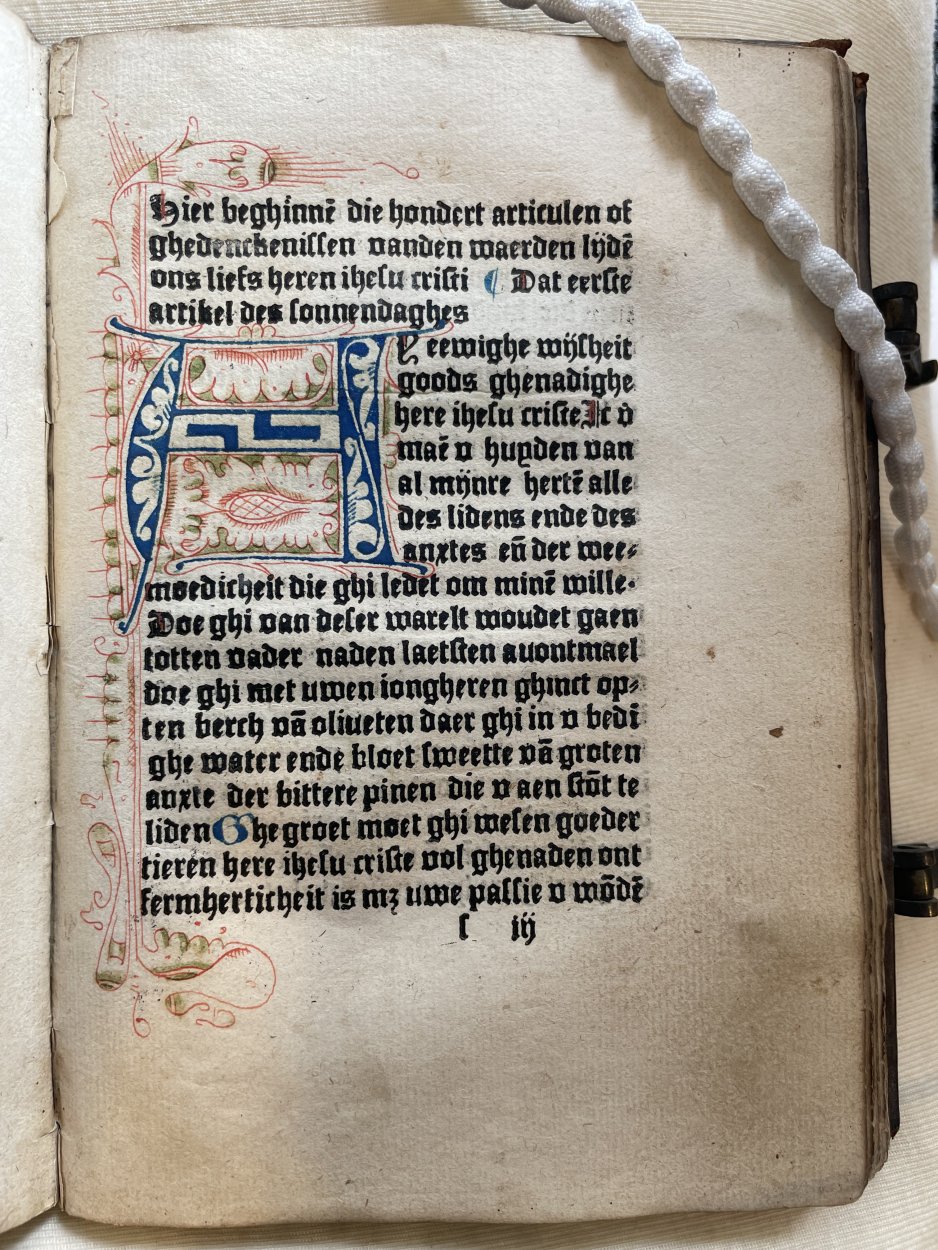 Hier beghinnē die hondert articulen of
ghedenckenissen vanden waerden lijdē
ons liefs heren ihesu cristi ¶ Dat eerste
artikel des sonnendaghes
AY eewighe wijsheit
goods ghenadighe
here ihesu criste Ic v̄
maē v huyden van
al mijnre hertē alle
des lidens ende des
anxtes eñ der wee⸗
moedicheit die ghi ledet om minē wille.
Doe ghi van deser warelt woudet gaen
totten vader naden laetsten auontmael
doe ghi met uwen iongheren ghinct op⸗
ten berch vā oliueten daer ghi in v bedī
ghe water ende bloet sweette vā groten
anxte der bittere pinen die v aen stōt te
liden Ghegroet moet ghi wesen goeder
tieren here ihesu criste vol ghenaden ont
fermherticheit is mꝫ uwe passie v wōdē
s iij